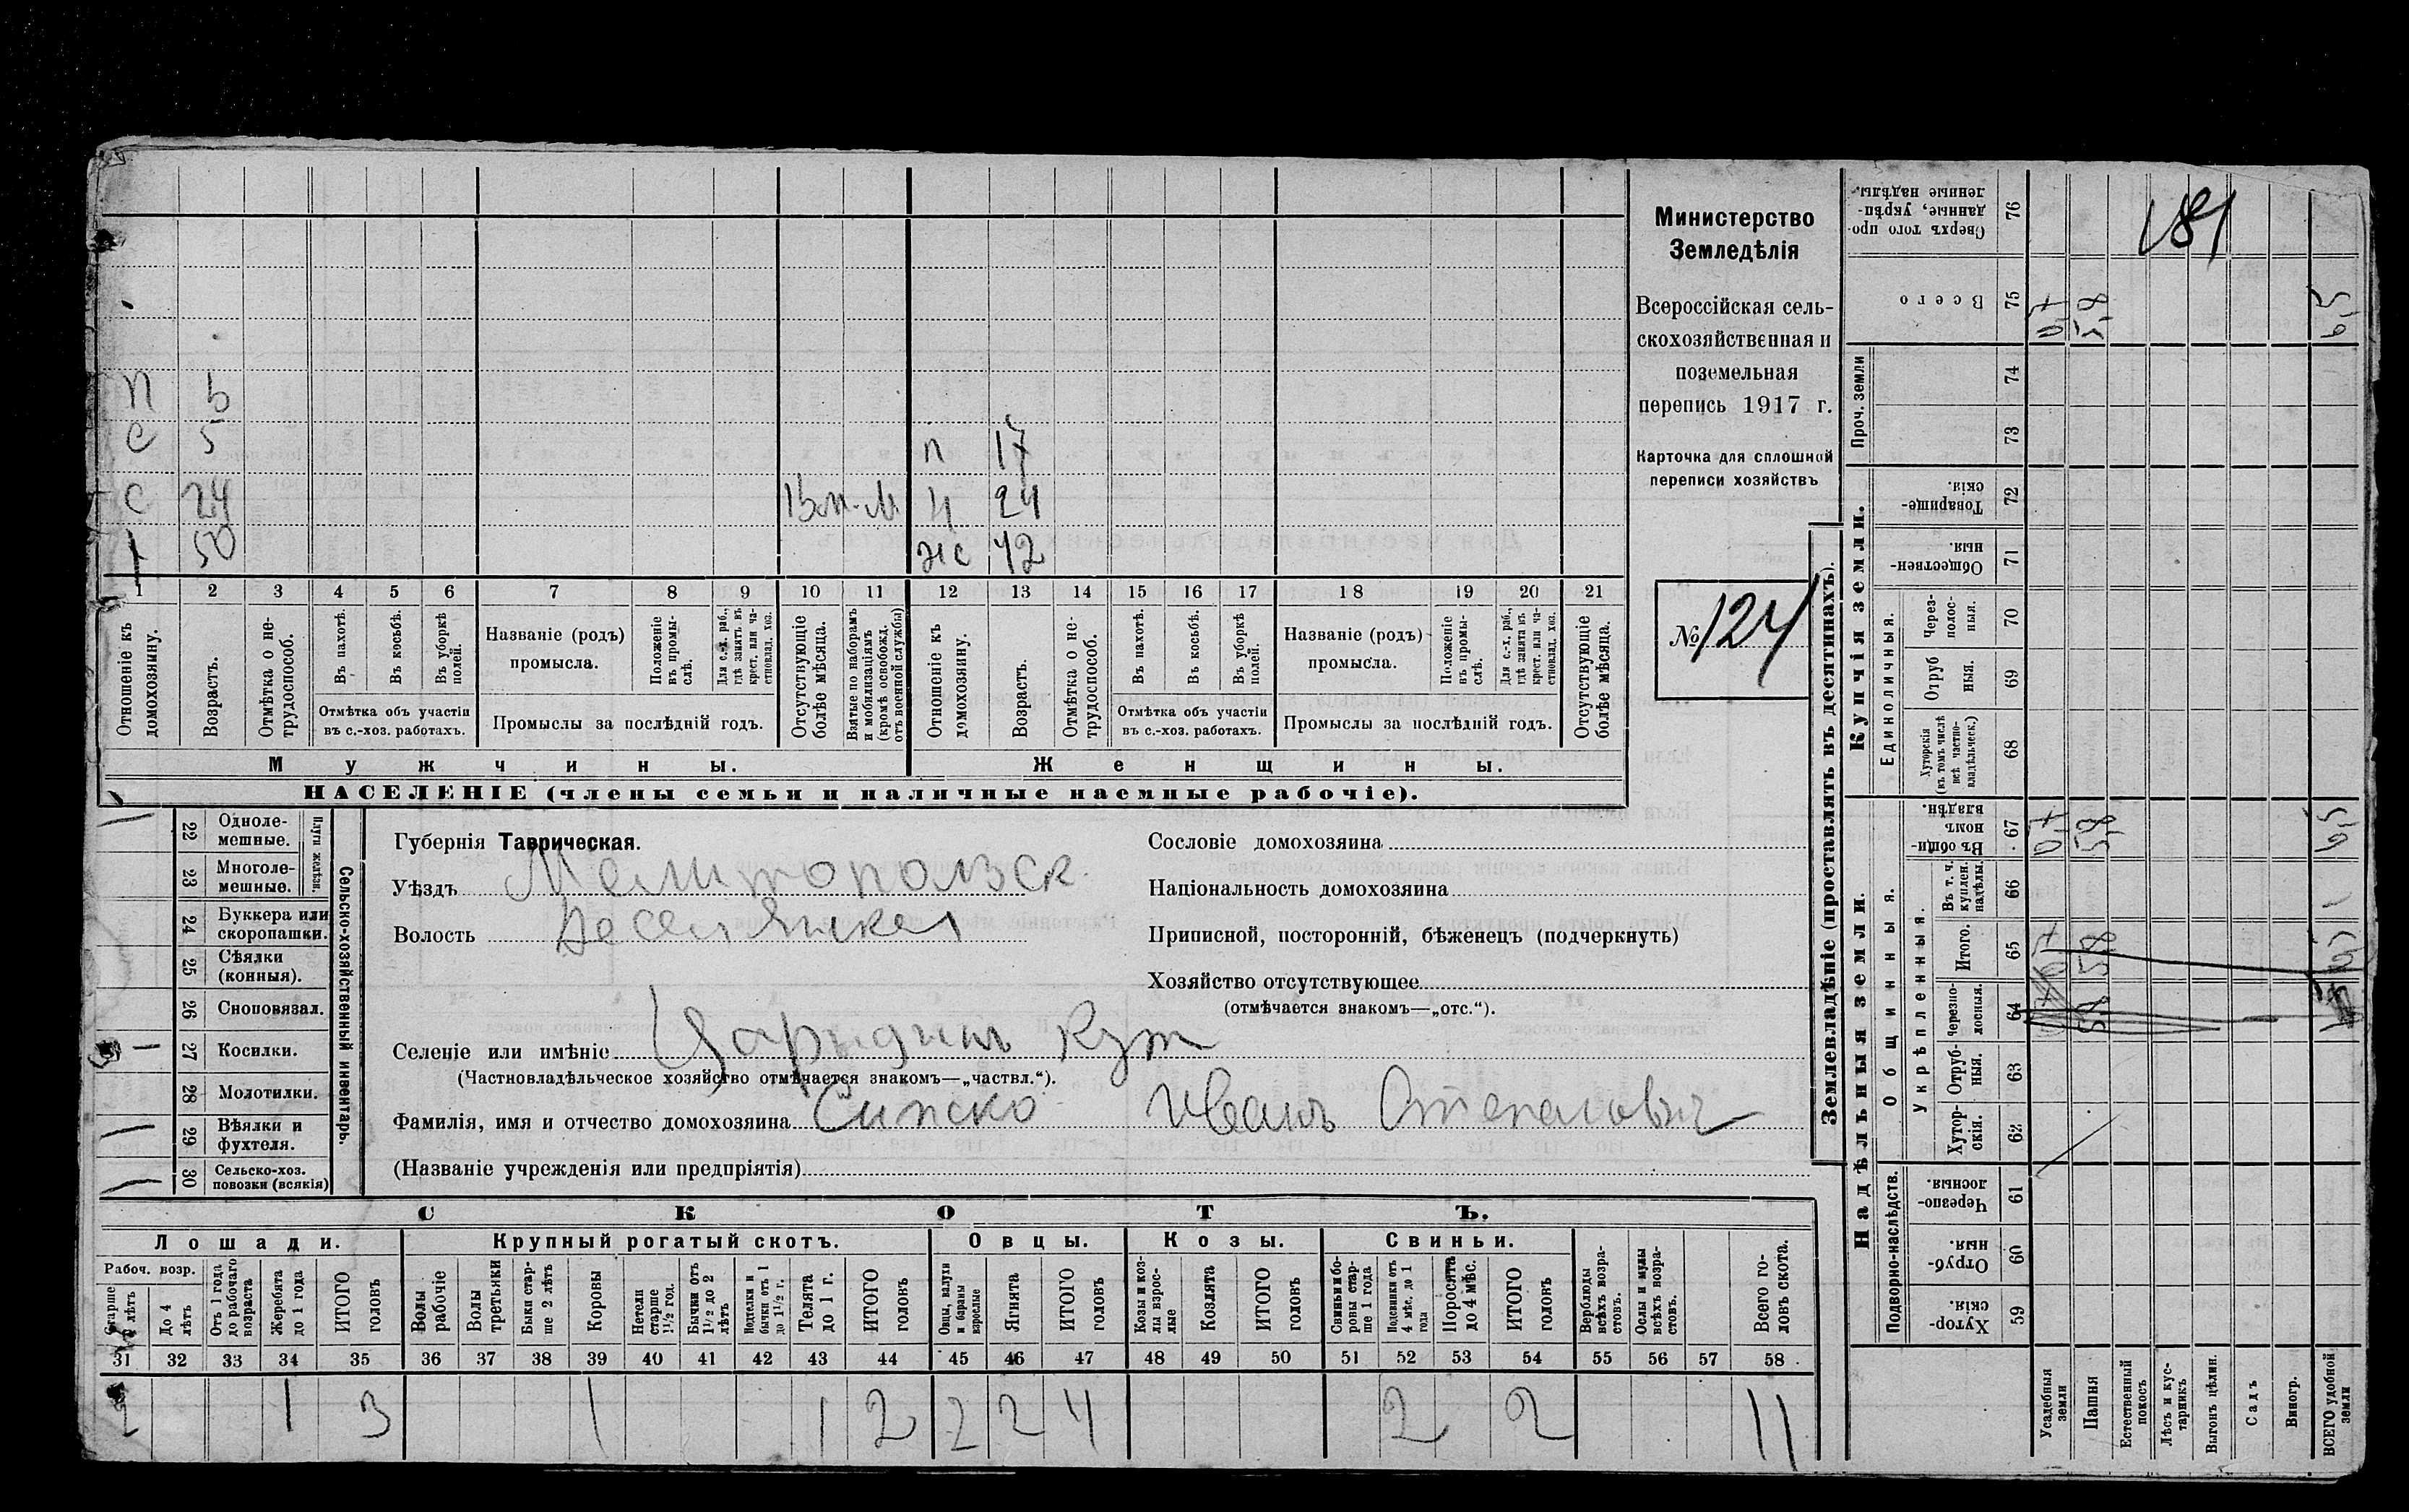 П 6
С 5 п 17
С 24 Вп.-М. Н 24
1 50 жс 42
1 2 3 4 5 6 7 8 9 10 11 12 13 14 15 16 17 18 19 20 21
Отношеніе къ домохозяину.
Возрастъ.
Отмѣтка о нетрудоспособ.
Въ пахотѣ.
Въ косьбѣ.
Въ уборкѣ полей.
Отмѣтка объ участіи
въ с.-хоз. работахъ.
Названіе (родъ)
промысла.
Положеніе въ промыслѣ.
Для с.-х. раб., гдѣ занятъ въ крест. или частновлад. хоз.
Промыслы за послѣдній годъ.
Отсутствующіе болѣе мѣсяца.
Взятые по наборамъ и мобилизаціямъ (кромѣ освобожд. отъ военной службы)
Отношеніе къ домохозяину.
Возрастъ.
Отмѣтка о нетрудоспособ.
Въ пахотѣ.
Въ косьбѣ.
Въ уборкѣ полей.
Отмѣтка объ участіи
въ с.-хоз. работахъ.
Названіе (родъ)
промысла.
Положеніе въ промыслѣ.
Для с.-х. раб., гдѣ занята въ крест. или частновлад. хоз.
Промыслы за послѣдній годъ.
Отсутствующіе болѣе мѣсяца.
Мужчины.
Женщины.
НАСЕЛЕНІЕ (члены семьи и наличные наемные рабочіе).
Министерство
Земледѣлія
Всероссійская сель-
скохозяйственная и
поземельная
перепись 1917 г.
Карточка для сплошной
переписи хозяйствъ
№ 124
Сельско-хозяйственный инвентарь.
Плуги желѣзн.
22 Однолемешные.
23 Многолемешные.
24 Буккера или скоропашки.
25 Сѣялки (конныя).
26 Сноповязал.
27 Косилки.
28 Молотилки.
29 Вѣялки и фухтеля.
30 Сельско-хоз. повозки (всякія)
Губернія Таврическая.
Уѣздъ Мелитопольск.
Волость Веселянская
Селеніе или имѣніе Царицын Кут
(Частновладѣльческое хозяйство отмѣчается знакомъ—„частвл.“).
Фамилія, имя и отчество домохозяина Сипско Иванъ Степановичъ
(Названіе учрежденія или предпріятія)
Сословіе домохозяина
Національность домохозяина
Приписной, посторонній, бѣженецъ (подчеркнуть)
Хозяйство отсутствующее
(отмѣчается знакомъ—„отс.“).
СКОТЪ.
Лошади. Крупный рогатый скотъ. Овцы. Козы. Свиньи.
Рабоч. возр.
До 4 лѣтъ
Отъ 1 года до рабочаго возраста
Жеребята до 1 года
ИТОГО головъ
Волы рабочіе
Волы третьяки
Быки старше 2 лѣтъ
Коровы
Нетели старше 1½ год.
Бычки отъ 1½ до 2 лѣтъ
Нетелки и бычки отъ 1 до 1½ г.
Телята до 1 г.
ИТОГО головъ
Овцы, валухи и бараны взрослые
Ягнята
ИТОГО головъ
Козы и козлы взрослые
Козлята
ИТОГО головъ
Свиньи и боровы старше 1 года
Подсвинки отъ 4 мѣс. до 1 года
Поросята до 4 мѣс.
ИТОГО головъ
Верблюды всѣхъ возрастовъ.
Ослы и мулы всѣхъ возрастовъ.
Всего головъ скота.
31 32 33 34 35 36 37 38 39 40 41 42 43 44 45 46 47 48 49 50 51 52 53 54 55 56 57 58
2 1 3 1 1 2 2 2 4 2 2 11
Землевладѣніе (проставлять въ десятинахъ).
Надѣльныя земли.
Купчія земли.
Проч. земли
Подворно-наслѣдств.
Общинныя.
Укрѣпленныя.
Единоличныя.
59 Хуторскія.
60 Отрубныя.
61 Черезполосныя.
62 Хуторскія.
63 Отрубныя.
64 Черезполосныя.
65 Итого.
66 Въ т. ч. куплен. надѣлы.
67 Въ общинномъ владѣн.
68 Хуторскія (въ томъ числѣ всѣ частновладѣльческ.)
69 Отрубныя.
70 Черезполосныя.
71 Общественныя.
72 Товарищескія.
73
74
75 Всего
76 Сверхъ того проданные, укрѣпленные надѣлы.
Усадебныя земли 0,7 0,7 0,7
Пашня 5,8 5,8 5,8 5,8
Естественный покосъ
Лѣсъ и кустарникъ
Выгонъ цѣлин.
Садъ
Виногр.
ВСЕГО удобной земли 6,5 6,5 6,5
181